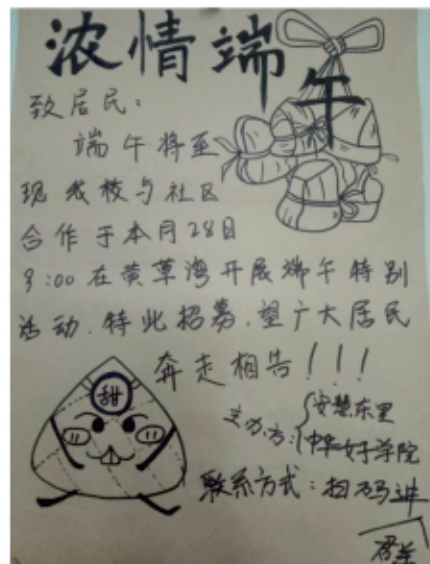 浓情端午
致居民：
端午将至
现我校与社区
合作于本月28日
9:00在黄草湾开展端午特别
活动，特此招募，望广大居民
奔走相告！！！
甜
主办方：{安慧东里
中华女子学院
联系方式：扫码进